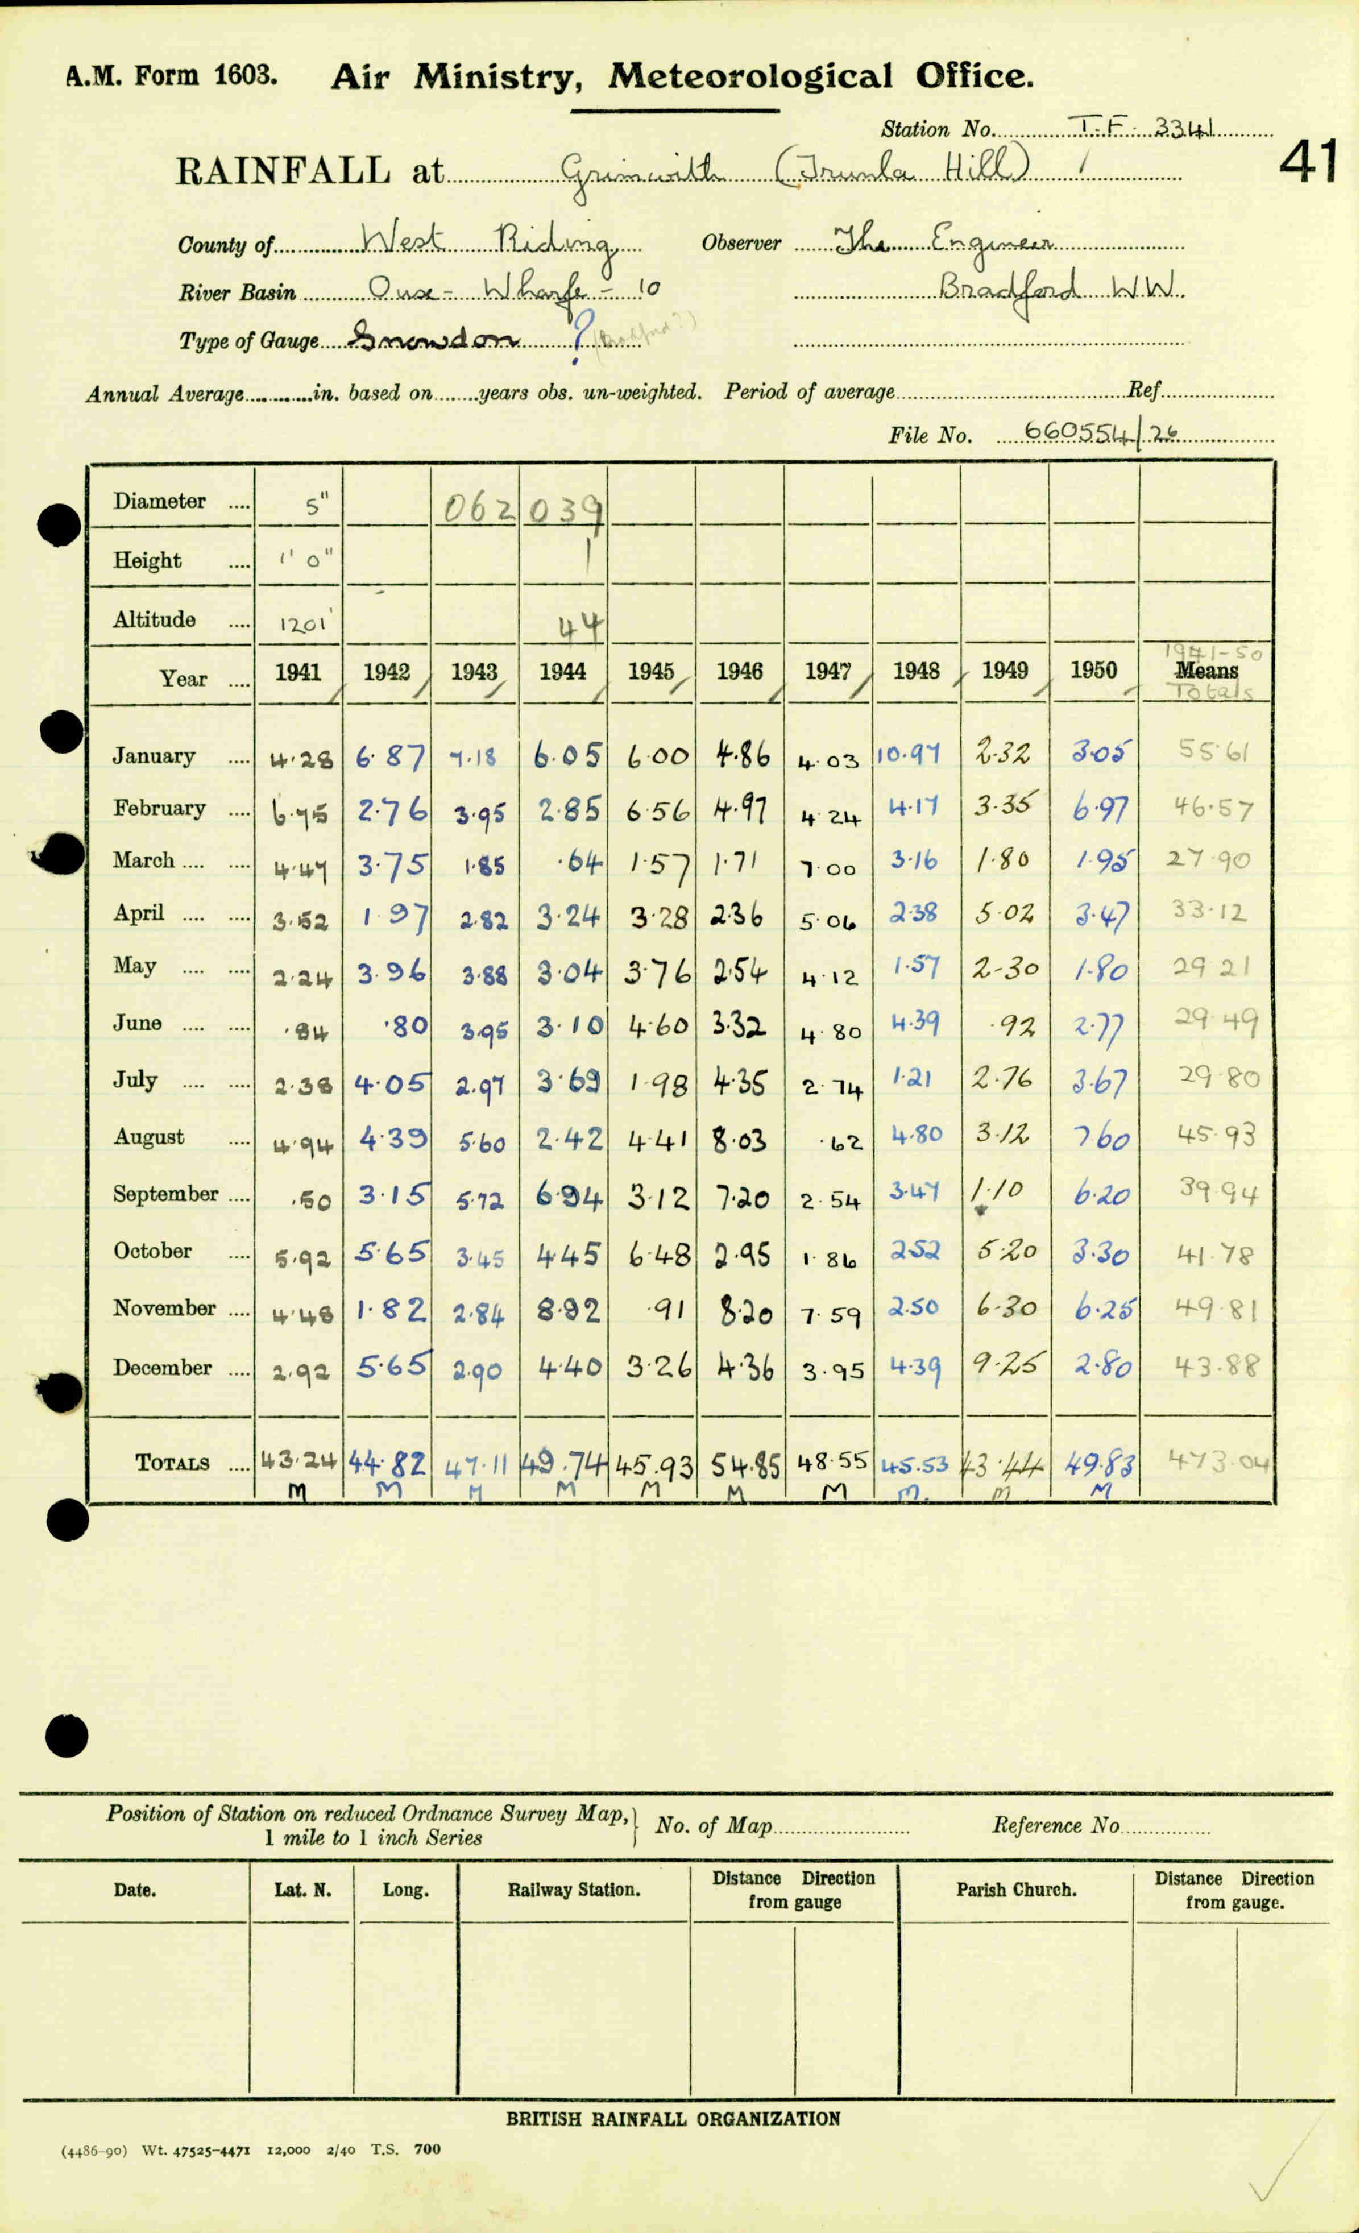 A.M. Form 1603. Air Ministry, Meteorological Office.
Station No. T.F. 3341
41
RAINFALL at Grimwith (Trunla Hill)
County of West Riding Observer The Engineer
River Basin Ouse - Wharfe - 10 Bradford W.W.
Type of Gauge Snowdon ? (Bradford?)
Annual Average in. based on years obs. un-weighted. Period of average Ref
File No. 660554/26
Diameter .... 5" 062 039
Height .... 1' 0" 1
Altitude .... 1201' 44
1941-50
Year .... 1941 1942 1943 1944 1945 1946 1947 1948 1949 1950 Means
Totals
January .... 4.28 6.87 7.18 6.05 6.00 4.86 4.03 10.97 2.32 3.05 55.61
February .... 6.75 2.76 3.95 2.85 6.56 4.97 4.24 4.17 3.35 6.97 46.57
March .... .... 4.47 3.75 1.85 .64 1.57 1.71 7.00 3.16 1.80 1.95 27.90
April .... .... 3.52 1.97 2.82 3.24 3.28 2.36 5.06 2.38 5.02 3.47 33.12
May .... .... 2.24 3.96 3.88 3.04 3.76 2.54 4.12 1.57 2.30 1.80 29.21
June .... .... .84 .80 3.95 3.10 4.60 3.32 4.80 4.39 .92 2.77 29.49
July .... .... 2.38 4.05 2.97 3.69 1.98 4.35 2.74 1.21 2.76 3.67 29.80
August .... 4.94 4.39 5.60 2.42 4.41 8.03 .62 4.80 3.12 7.60 45.93
September .... .50 3.15 5.72 6.94 3.12 7.20 2.54 3.47 1.10 6.20 39.94
October .... 5.92 5.65 3.45 4.45 6.48 2.95 1.86 2.52 5.20 3.30 41.78
November .... 4.48 1.82 2.84 8.92 .91 8.20 7.59 2.50 6.30 6.25 49.81
December .... 2.92 5.65 2.90 4.40 3.26 4.36 3.95 4.39 9.25 2.80 43.88
TOTALS .... 43.24 44.82 47.11 49.74 45.93 54.85 48.55 45.53 43.44 49.83 473.04
M M M M M M M M. M M
Position of Station on reduced Ordnance Survey Map, } No. of Map Reference No
1 mile to 1 inch Series
Date. Lat. N. Long. Railway Station. Distance Direction from gauge Parish Church. Distance Direction from gauge.
BRITISH RAINFALL ORGANIZATION
(4486-90) Wt. 47525-4471 12,000 2/40 T.S. 700